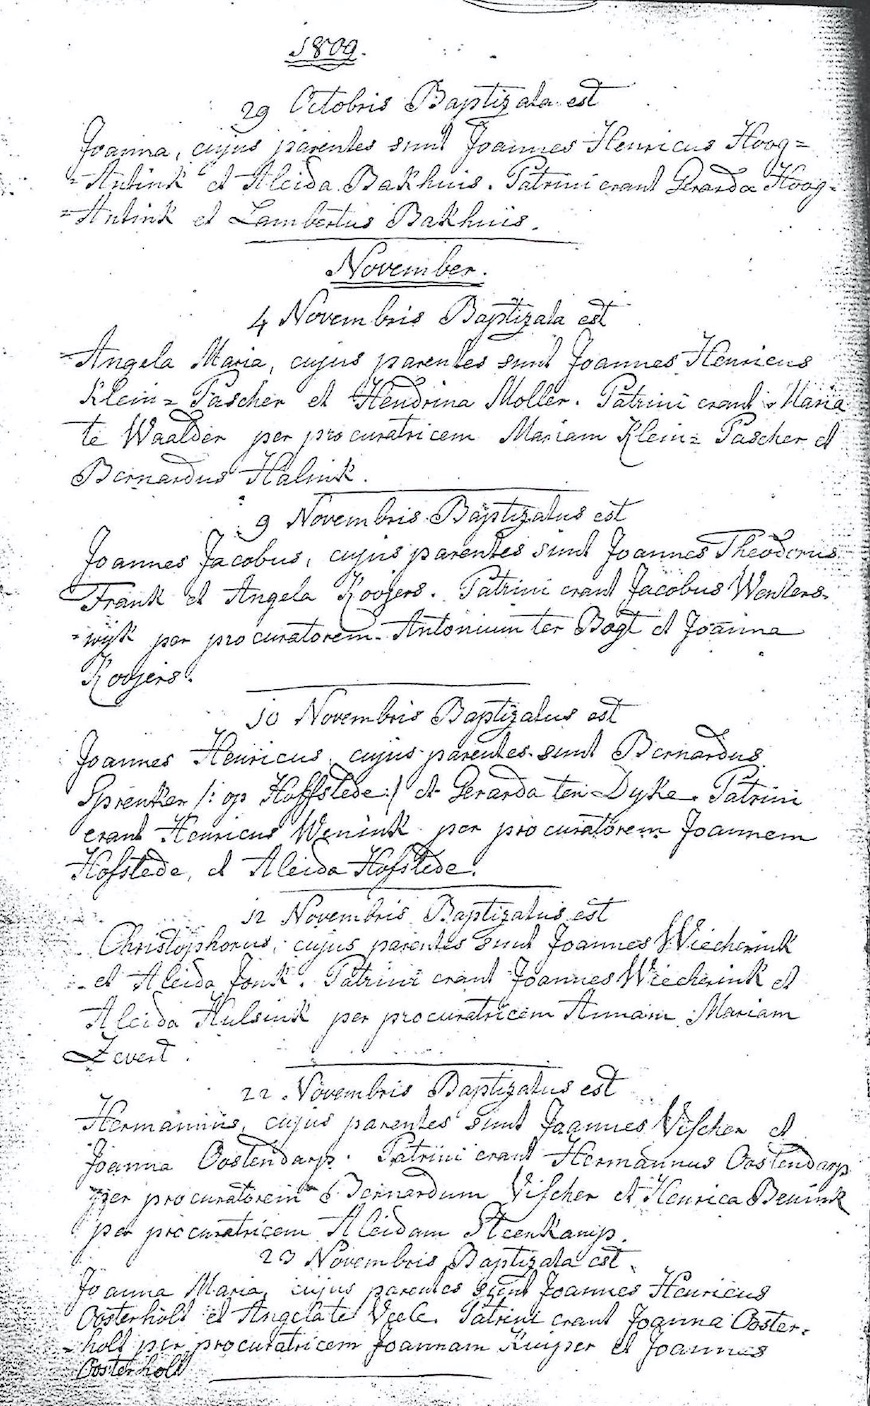 1809.
29 Octobris Baptizata est
Joanna, cujus parentes sunt Joannes Henricus Hoog=
=Antink et Aleida Bakhuis. Patrini erant Gerarda Hoog=
=Antink et Lambertus Bakhuis.
November.
4 Novembris Baptizata est
Angela Maria, cujus parentes sunt Joannes Henricus
Klein= Pascher et Hendrina Moller. Patrini erant Maria
te Waalder per procuratricem Mariam Klein= Pascher et
Bernardus Halink.
9 Novembris Baptizatus est
Joannes Jacobus, cujus parentes sunt Joannes Theodorus
Frank et Angela Roojers. Patrini erant Jacobus Wenters=
=wijk per procuratorem Antonium ter Bogt et Joanna
Roojers.
10 Novembris Baptizatus est
Joannes Henricus, cujus parentes sunt Bernardus
Sprenker /: op Hoffstede:/ et Gerarda ten Dyke. Patrini
erant Henricus Wenink per procuratorem Joannem
Hofstede, et Aleida Hofstede.
12 Novembris Baptizatus est
Christophorus, cujus parentes sunt Joannes Wiecherink
et Aleida Jonk. Patrini erant Joannes Wiecherink et
Aleida Hulsink per procuratricem Annam Mariam
Zevert.
22 Novembris Baptizatus est
Hermannus, cujus parentes sunt Joannes Visscher et
Joanna Oostendarp. Patrini erant Hermannus Oostendarp
per procuratorem Bernardum Visscher et Henrica Bevink
per procuratricem Aleidam Steenkamp.
23 Novembris Baptizata est
Joanna Maria, cujus parentes sunt Joannes Henricus
Oosterholt et Angela te Veele. Patrini erant Joanna Ooster=
=holt per procuratricem Joannam Kuiper et Joannes
Oosterholt